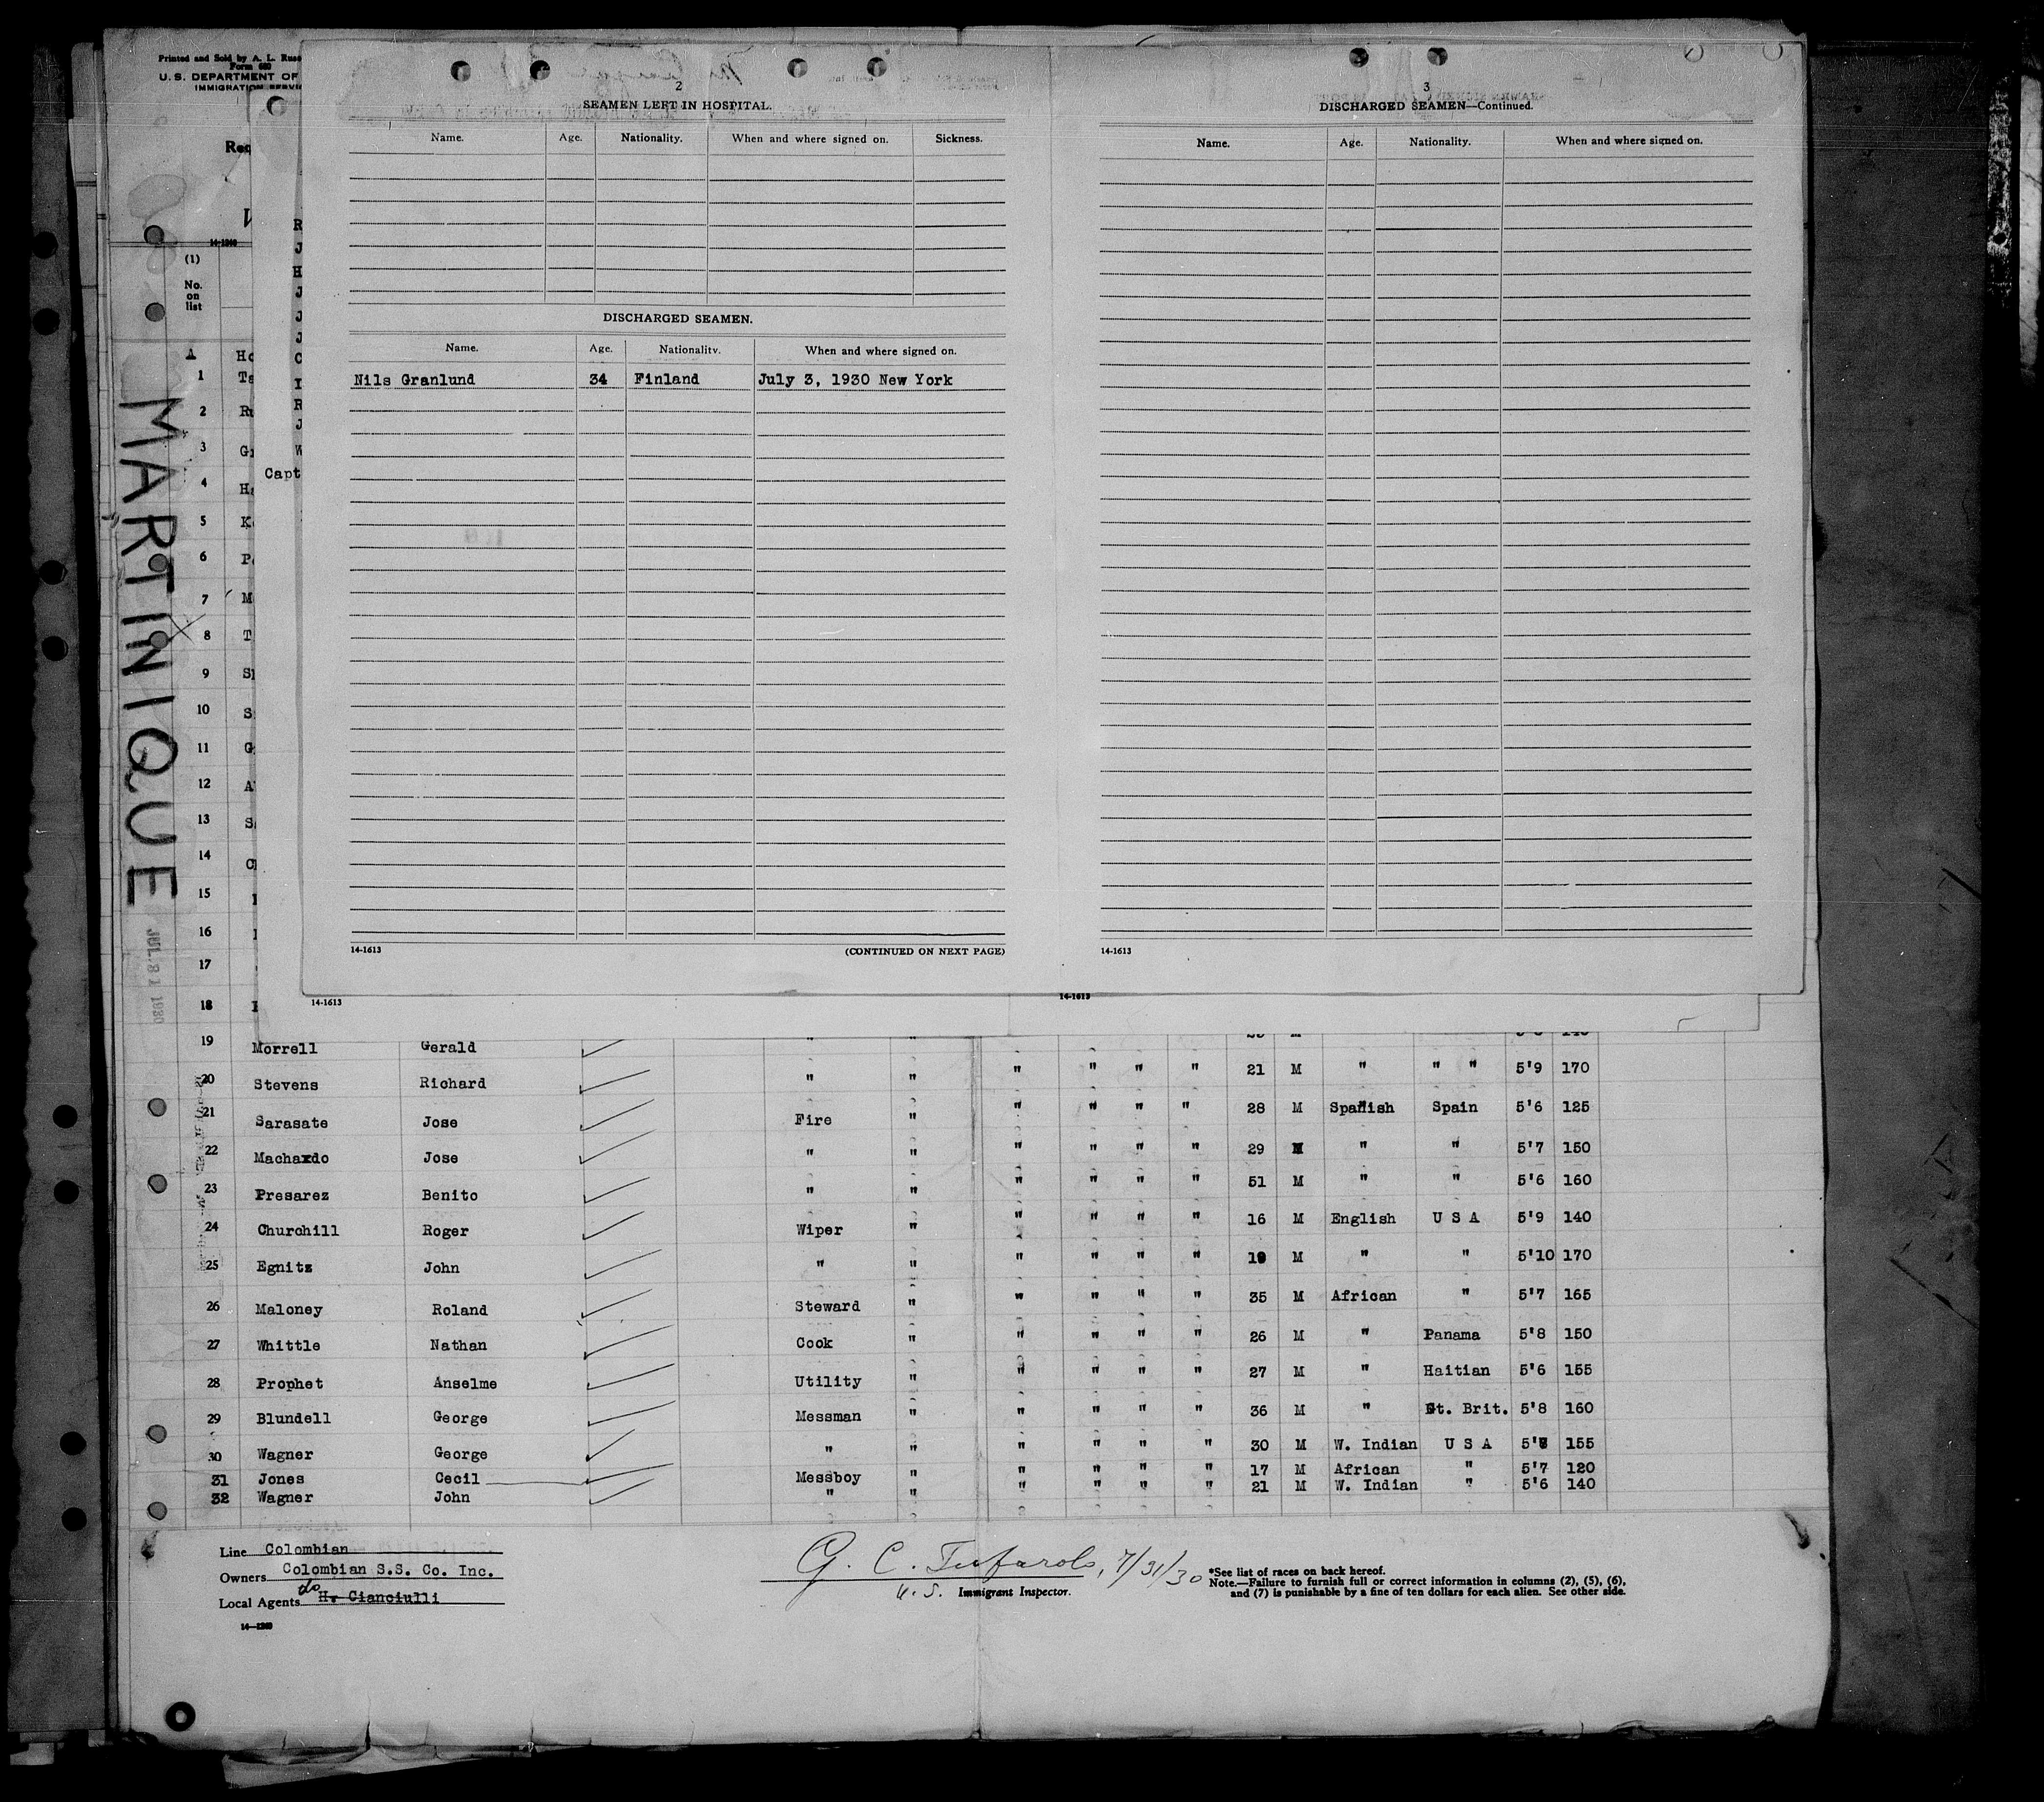 Printed and Sold by A. L. Russ
Form 680
U. S. DEPARTMENT OF
IMMIGRATION SERVI
Req
14-1240
(1)
No.
on
list
MARTINIQUE
JUL 31 1930
Capt
2
SEAMEN LEFT IN HOSPITAL.
Name. Age. Nationality. When and where signed on. Sickness.
DISCHARGED SEAMEN.
Name. Age. Nationality. When and where signed on.
Nils Granlund 34 Finland July 3, 1930 New York
14-1613 (CONTINUED ON NEXT PAGE)
3
DISCHARGED SEAMEN—Continued.
Name. Age. Nationality. When and where signed on.
14-1613
14-1613 14-1613
A Ho
1 Ta
2 Ru
3 Gr
4 Ha
5 K
6 P
7 M
8 T
9 Sh
10 S
11 G
12 A
13 S
14 Ch
15
16
17
18
19 Morrell Gerald " "
20 Stevens Richard " " " " " " 21 M " " " 5'9 170
21 Sarasate Jose Fire " " " " " 28 M Spanish Spain 5'6 125
22 Machardo Jose " " " " " " 29 M " " 5'7 150
23 Presarez Benito " " " " " " 51 M " " 5'6 160
24 Churchill Roger Wiper " " " " " 16 M English U S A 5'9 140
25 Egnitz John " " " " " " 19 M " " 5'10 170
26 Maloney Roland Steward " " " " " 35 M African " 5'7 165
27 Whittle Nathan Cook " " " " " 26 M " Panama 5'8 150
28 Prophet Anselme Utility " " " " " 27 M " Haitian 5'6 155
29 Blundell George Messman " " " " " 36 M " Gt. Brit. 5'8 160
30 Wagner George " " " " " " 30 M W. Indian U S A 5'8 155
31 Jones Cecil Messboy " " " " " 17 M African " 5'7 120
32 Wagner John " " " " " " 21 M W. Indian " 5'6 140
Line Colombian
Owners Colombian S.S. Co. Inc.
do
Local Agents H. Cianciulli
14-1240
G. C. Tufarolo, 7/31/30
U. S. Immigrant Inspector.
*See list of races on back hereof.
Note.—Failure to furnish full or correct information in columns (2), (5), (6),
and (7) is punishable by a fine of ten dollars for each alien. See other side.